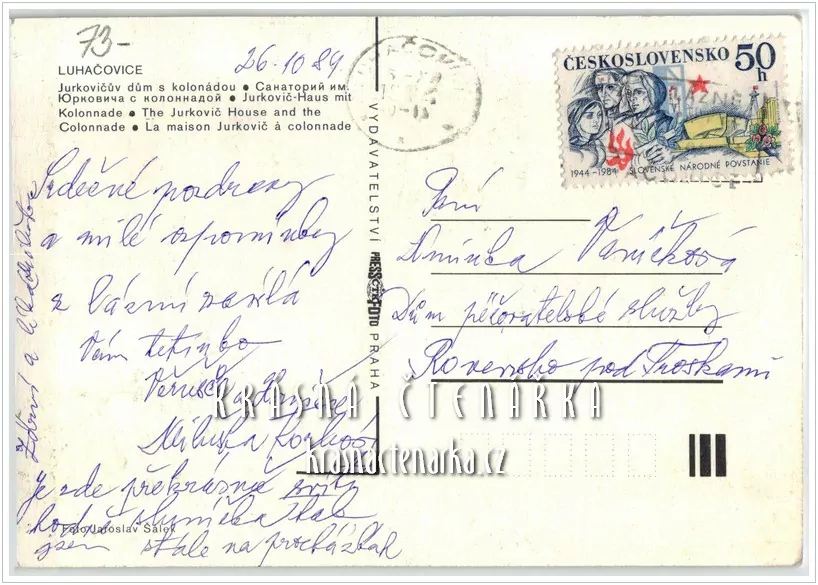 73-
26.10 84
LUHAČOVICE
Jurkovičův dům s kolonádou • Санаторий им.
Юрковича с колоннадой • Jurkovič-Haus mit
Kolonnade • The Jurkovič House and the
Colonnade • La maison Jurkovič à colonnade
Srdečné pozdravy
a milé vzpomínky
z lázní zasílá
Vám tetinko
Věruš
Miluška
Je zde překrásně svítí
hodně sluníčka tak
jsem stále na procházkách
Zdraví a
Foto Jaroslav Šálek
VYDAVATELSTVÍ PRESSFOTO PRAHA
ČTK
ČESKOSLOVENSKO 50 h
1944–1984 SLOVENSKÉ NÁRODNÉ POVSTANIE
Paní
Aminka Vaníčková
Dům pečovatelské služby
Rovensko pod Troskami
KRÁSNÁ ČTENÁŘKA
krasnactenarka.cz